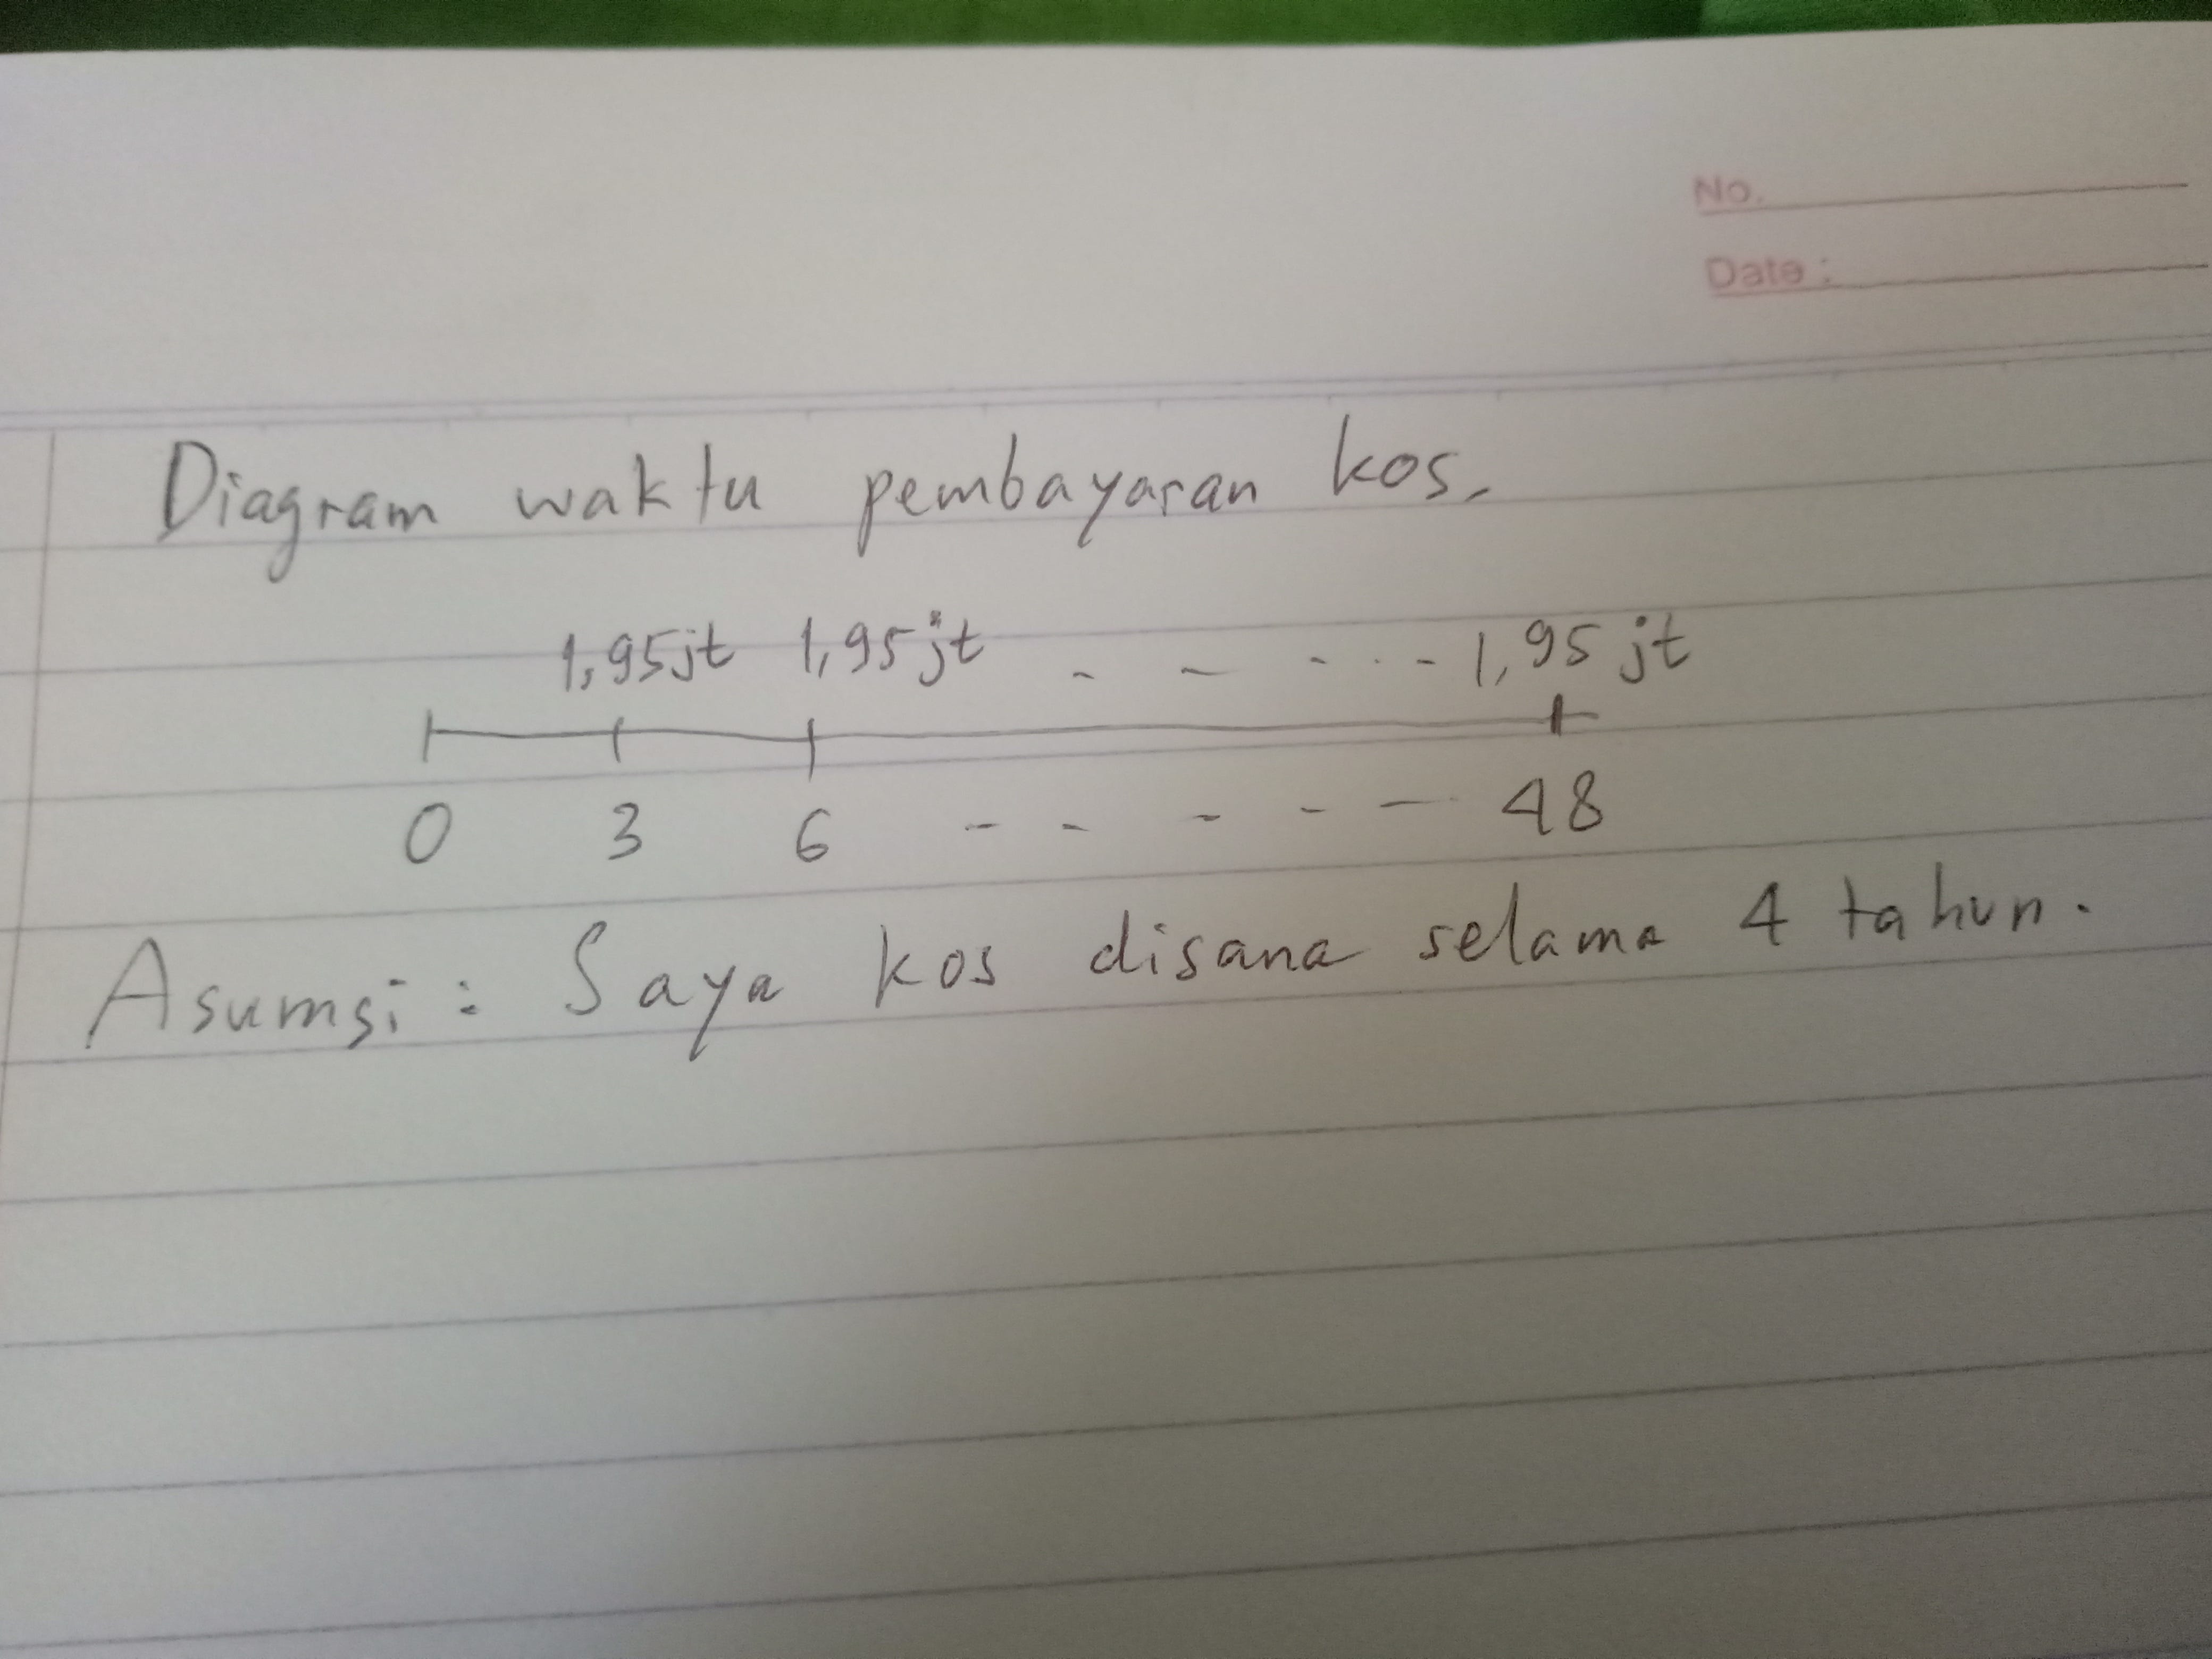 No.
Date :
Diagram waktu pembayaran kos.
1,95jt 1,95jt - - - - - - 1,95 jt
0 3 6 - - - - - 48
Asumsi : Saya kos disana selama 4 tahun.